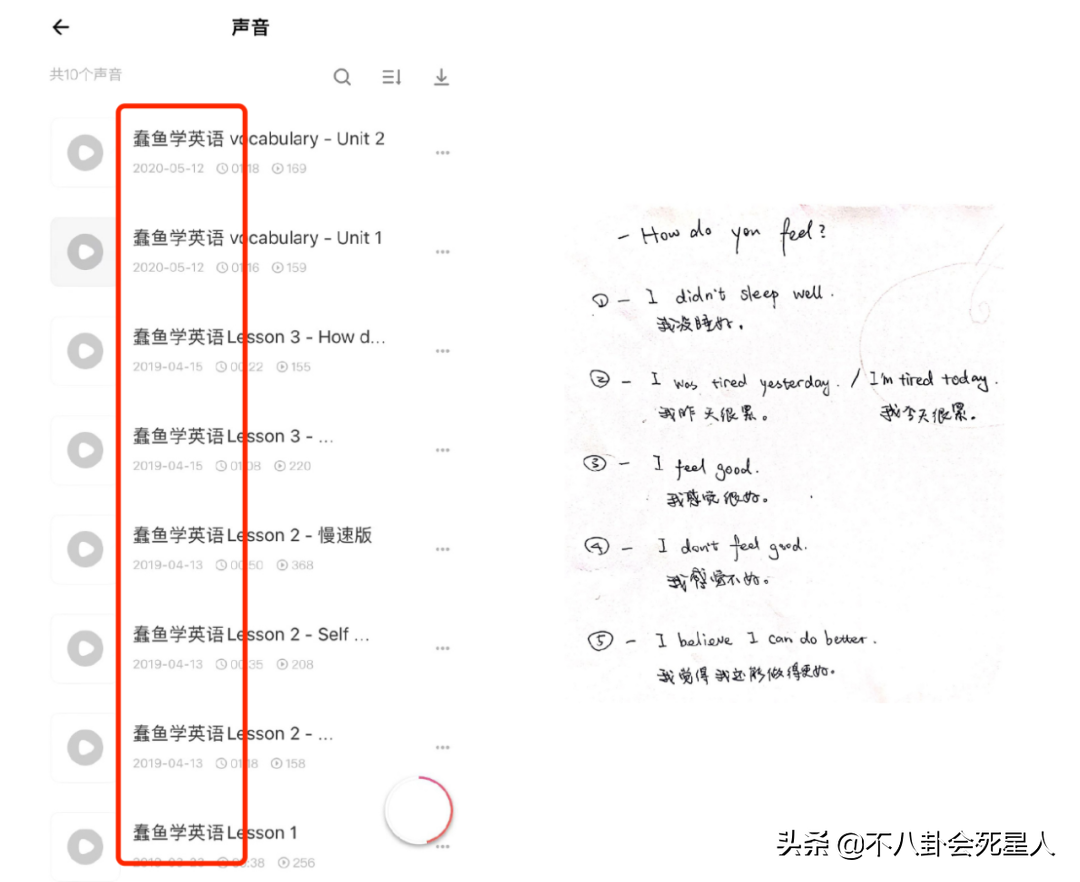 声音
共10个声音
蠢鱼学英语 vocabulary - Unit 2
2020-05-12 01:18 169
蠢鱼学英语 vocabulary - Unit 1
2020-05-12 01:16 159
蠢鱼学英语Lesson 3 - How d...
2019-04-15 00:22 155
蠢鱼学英语Lesson 3 - ...
2019-04-15 01:08 220
蠢鱼学英语Lesson 2 - 慢速版
2019-04-13 00:50 368
蠢鱼学英语Lesson 2 - Self ...
2019-04-13 00:35 208
蠢鱼学英语Lesson 2 - ...
2019-04-13 01:18 158
蠢鱼学英语Lesson 1
:38 256
- How do you feel?
① - I didn't sleep well.
我没睡好。
② - I was tired yesterday. / I'm tired today.
我昨天很累。 我今天很累。
③ - I feel good.
我感觉很好。
④ - I don't feel good.
我感觉不好。
⑤ - I believe I can do better.
我觉得我还能做得更好。
头条 @不八卦会死星人